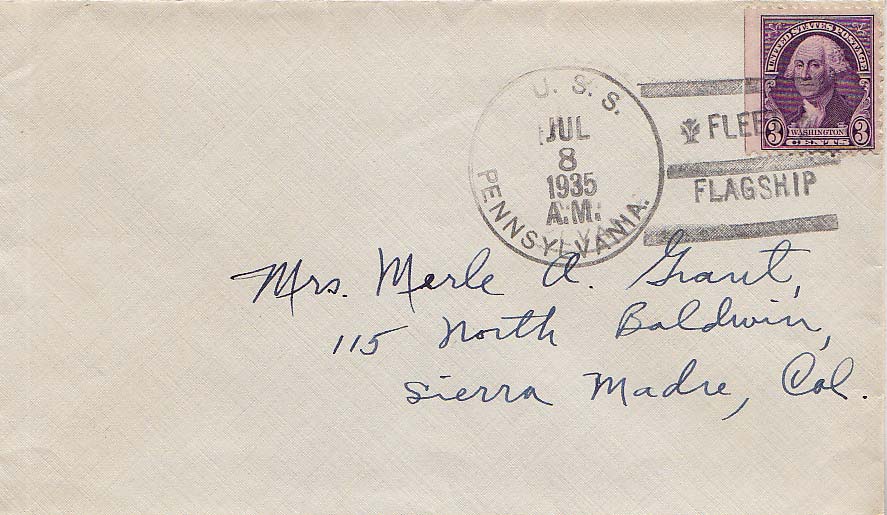 UNITED STATES POSTAGE
3 WASHINGTON 3
CENTS
U. S. S.
JUL
8
1935
A.M.
PENNSYLVANIA.
FLEE
FLAGSHIP
Mrs. Merle A. Grant,
115 North Baldwin,
Sierra Madre, Cal.